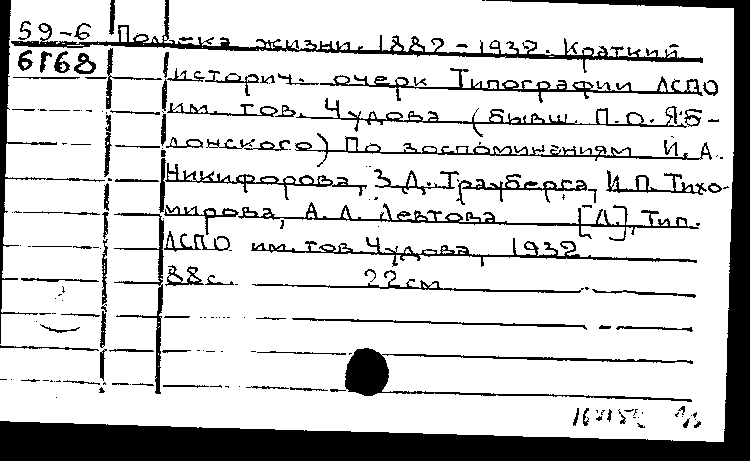 59-6 Полвека жизни. 1882-1932. Краткий
6168 историч. очерк Типографии ЛСПО
им. тов. Чудова (бывш. П.О. Яб-
лонского) По воспоминаниям И.А.
Никифорова, З.Д. Трауберга, И.П. Тихо-
мирова, А.Л. Левтова. [Л.], Тип.
ЛСПО им. тов. Чудова, 1932.
38с. 22см